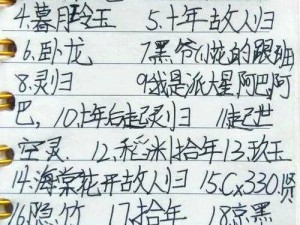 4.暮月铃玉 5.十年故人归
6.卧龙 7黑爷小花的跟班
8.灵归 9我是派大星阿巴阿
巴, 10.十年后起灵归 11起世
空灵. 12.稻米拾年13.玖玉
14.海棠花开故人归 15.Cx330.贤
16.隐竹 17.拾年 18.京黑